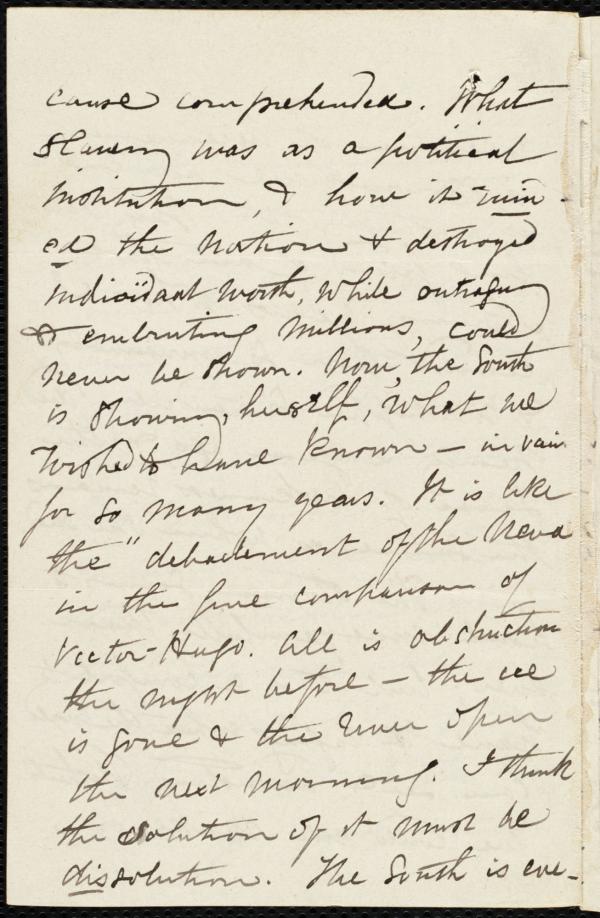 cause comprehended. What
Slavery was as a political
institution, & how it ruin-
ed the nation & destroyed
individual worth, while outraging
& embruting millions, could
never be shown. Now, the South
is showing, herself, what we
wished to have known – in vain
for so many years. It is like
the "debaclement of the Neva
in the fine comparison of
Victor-Hugo. All is obstruction
the night before – the ice
is gone & the river open
the next morning. I think
the solution of it must be
dissolution. The South is eve-